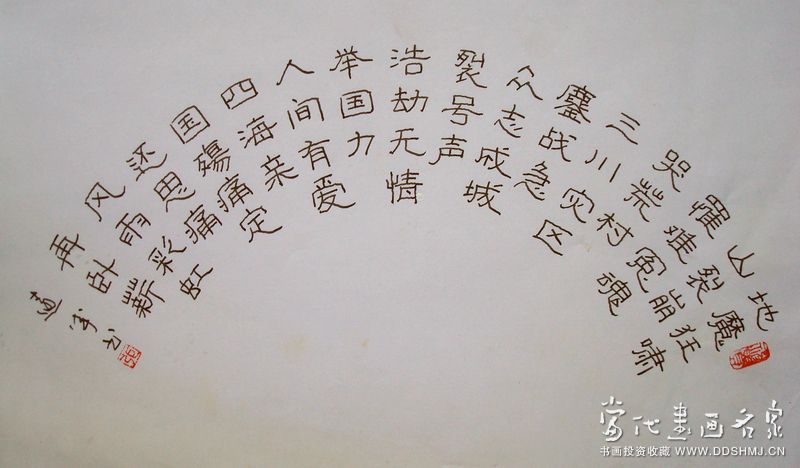 地魔狂啸
山裂崩
罹难冤魂
哭荒村
三川灾区
鏖战急
众志成城
裂号声
浩劫无情
举国力
人间有爱
四海亲
国殇痛定
还思痛
风雨彩虹
再卧薪
书
当代书画名家
书画投资收藏 WWW.DDSHMJ.CN